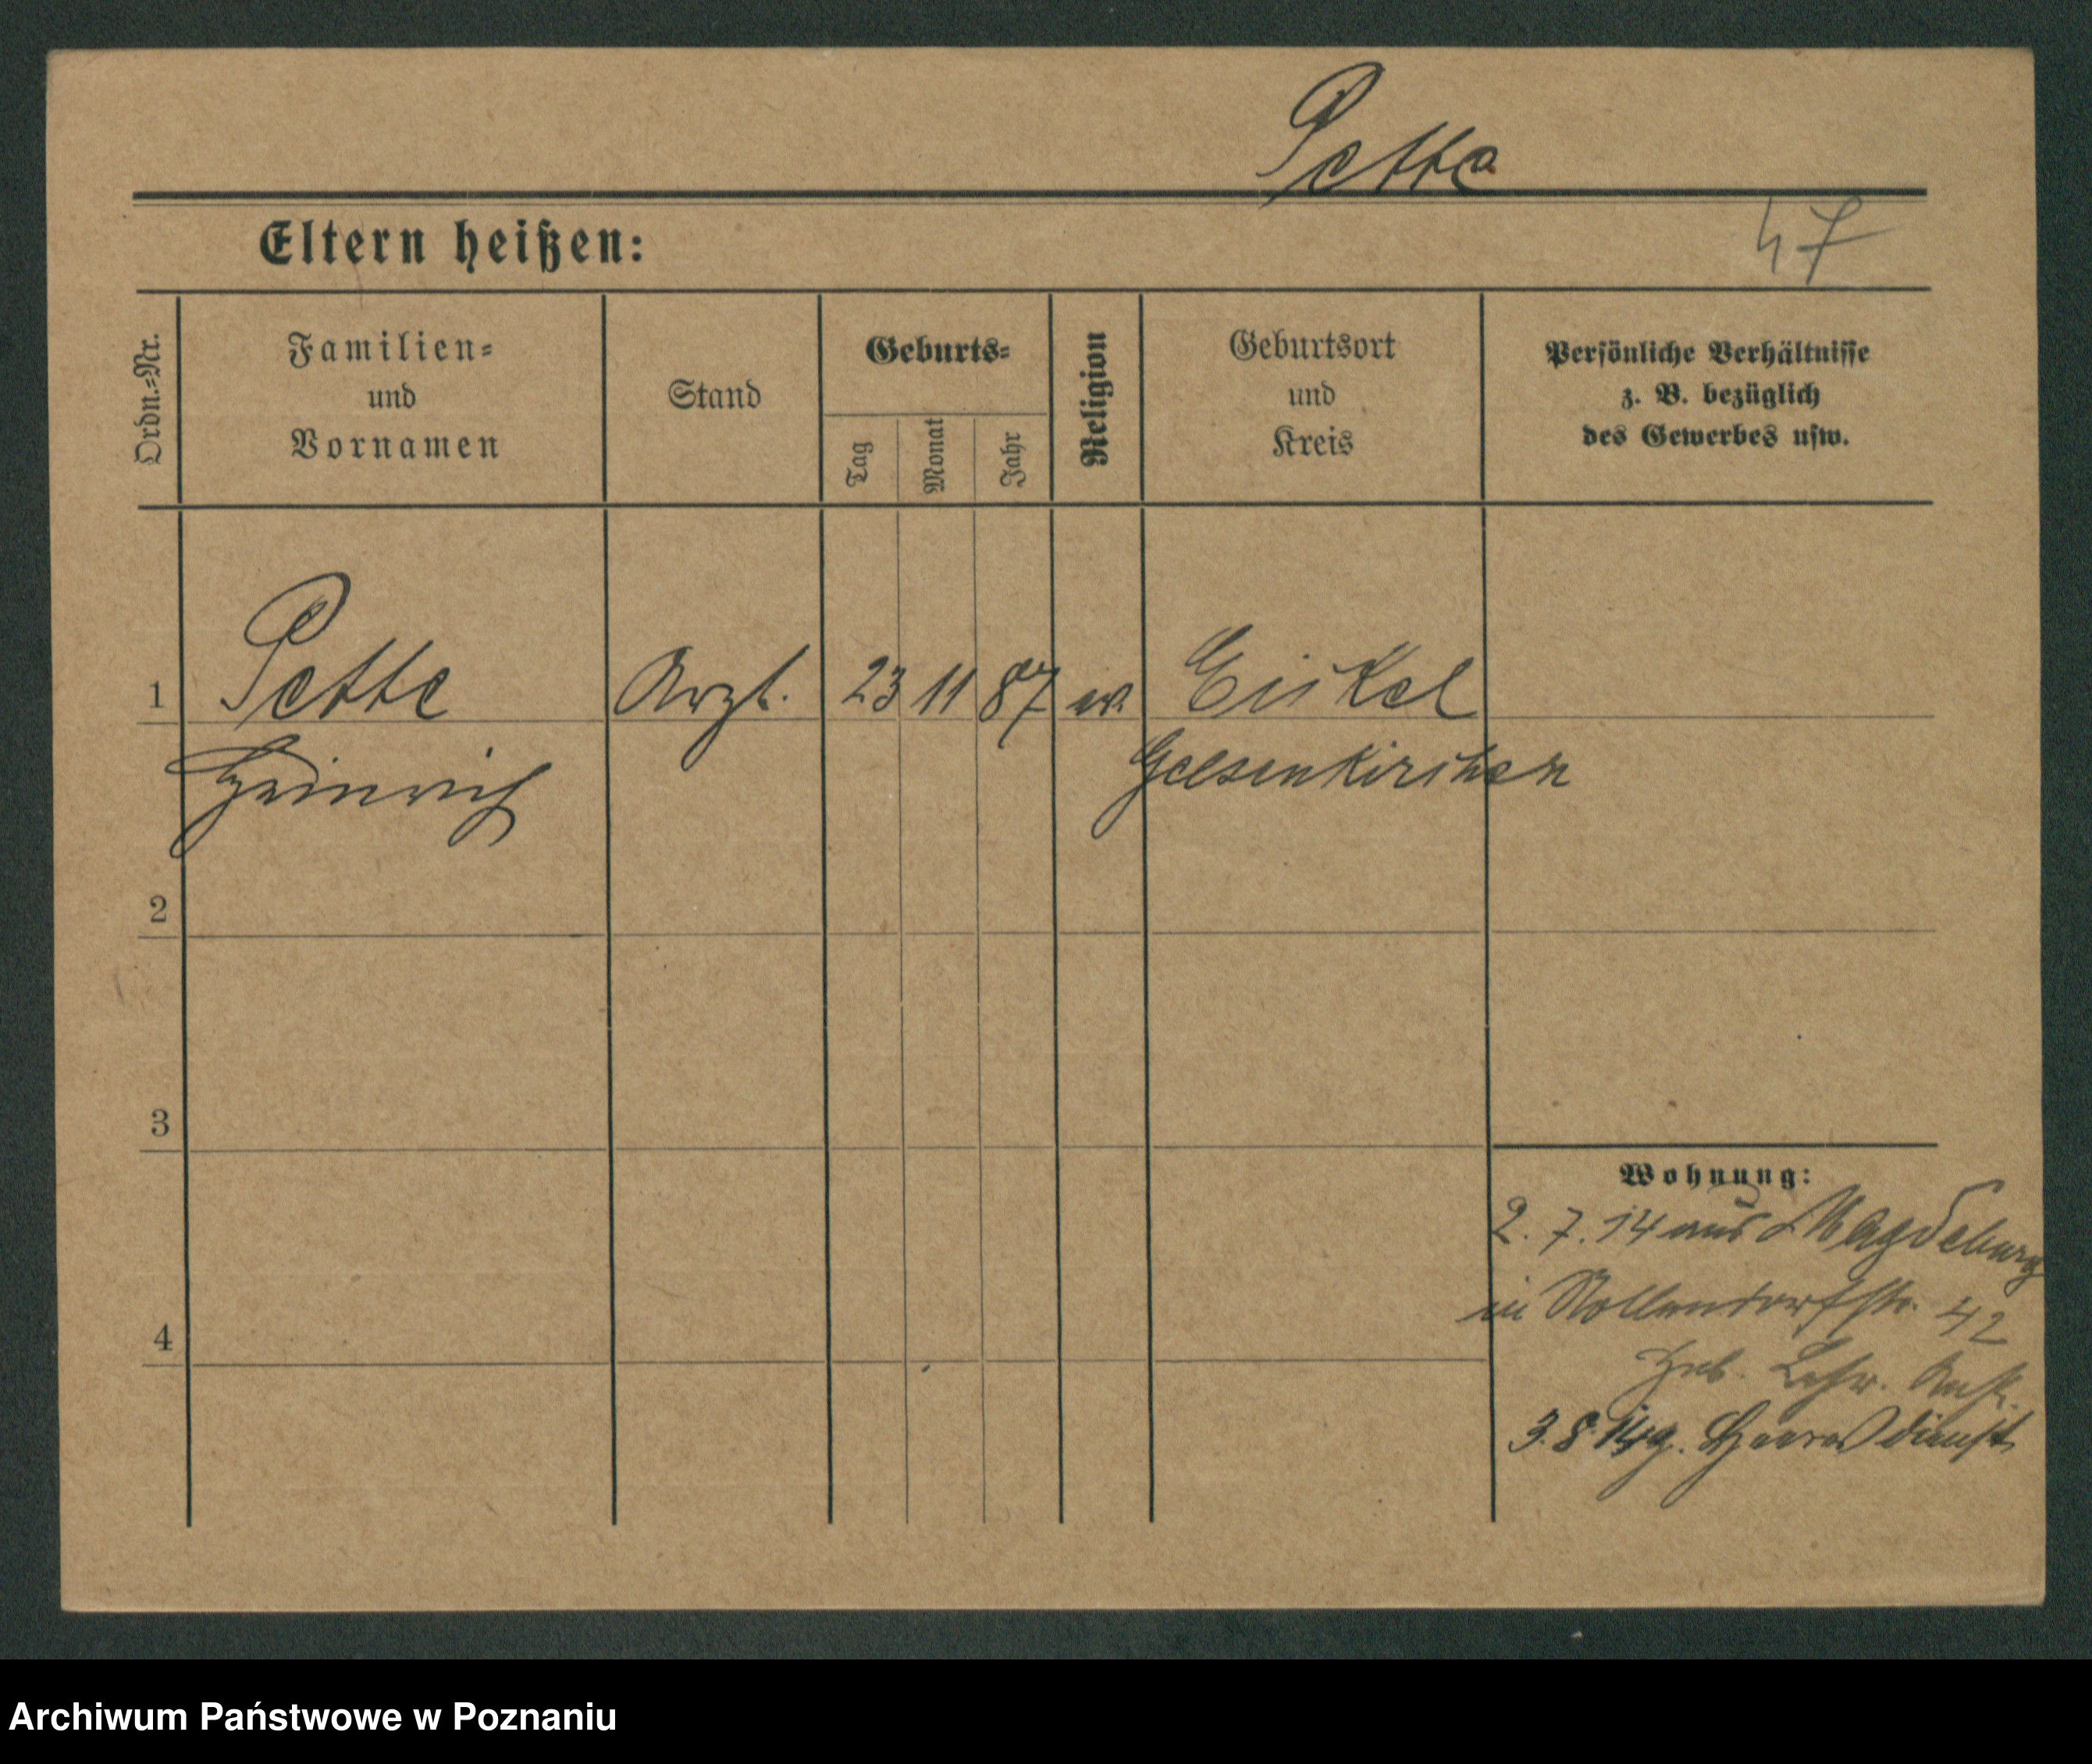 Pette
Eltern heißen:
47
Ordn.=Nr.
Familien=
und
Vornamen
Stand
Geburts=
Tag
Monat
Jahr
Religion
Geburtsort
und
Kreis
Persönliche Verhältnisse
z. B. bezüglich
des Gewerbes usw.
1
Pette
Arzt.
23
11
87
ev.
Eickel
Heinrich
Gelsenkirchen
2
3
4
Wohnung:
2. 7. 14 aus Magdeburg
in Nollendorfstr. 42
Heb. Lehr. Anst.
3. 8. 14 z. Heeresdienst
Archiwum Państwowe w Poznaniu